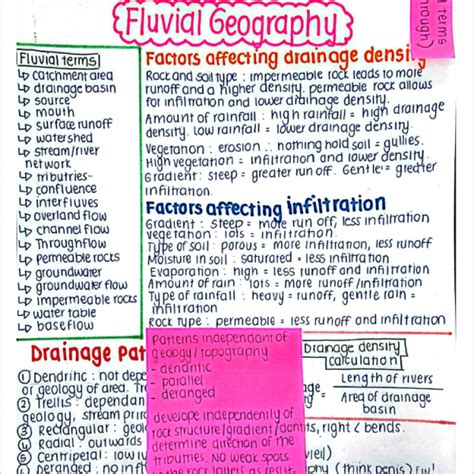 Fluvial Geography
terms
through)
Fluvial terms
↳ catchment area
↳ drainage basin
↳ source
↳ mouth
↳ surface runoff
↳ watershed
↳ stream/river
network
↳ tributries-
↳ confluence
↳ interfluves
↳ overland flow
↳ channel flow
↳ Throughflow
↳ permeable rocks
↳ groundwater
↳ groundwater flow
↳ impermeable rocks
↳ water table
↳ baseflow
Factors affecting drainage density
Rock and soil type : impermeable rock leads to more
runoff and a higher density. permeable rock allows
for infiltration and lower drainage density.
Amount of rainfall : high rainfall = high drainage
density. low rainfall = lower drainage density.
Vegetation : erosion ∴ nothing hold soil = gullies.
High vegetation = infiltration and lower density
Gradient: steep = greater run off. Gentle = greater
infiltration.
Factors affecting infiltration
Gradient : steep = more run off, less infiltration
vegetation : lots = infiltration
Type of soil : porous = more infiltration, less runoff
Moisture in soil : saturated = less infiltration
Evaporation : high = less runoff and infiltration
Amount of rain : lots = more runoff/infiltration
Type of rainfall : heavy = runoff, gentle rain =
infiltration
Rock type : permeable = less runoff and infiltration
Drainage Pat
① Dendritic : not depe
or geology of area. Tr
② Trellis : dependan
geology, stream pri
③ Rectangular : geolo
④ Radial : outwards
⑤ Centripetal : low ly
⑥ deranged : no infl
Patterns independant of
geology/topography
- dendritic
- parallel
- deranged
develope independently of
rock structure/gradient/
determine direction of the
tributries. No weak spots
Drainage density
calculation
= Length of rivers
Area of drainage
basin
right < bends.
(think penis)